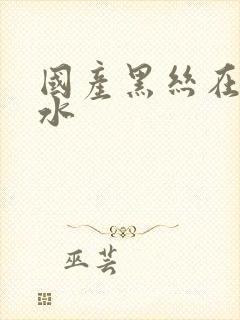 國產黑絲在
水
巫芸